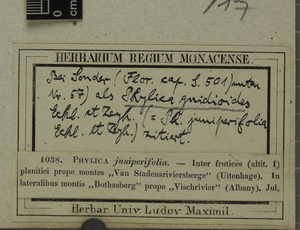 117
HERBARIUM REGIUM MONACENSE.
Bei Sonder (Flor. cap. S. 501 unter
Nr. 57) als Phylica gnidioides
Eckl. et Zeyh. (= Ph. juniperifolia
Eckl. et Zeyh.) zitiert.
1038. PHYLICA juniperifolia. — Inter frutices (altit. I)
planitiei prope montes „Van Stadensriviersberge" (Uitenhage). In
lateralibus montis „Bothasberg" prope „Vischrivier" (Albany). Jul.
Herbar. Univ. Ludov. Maximil.